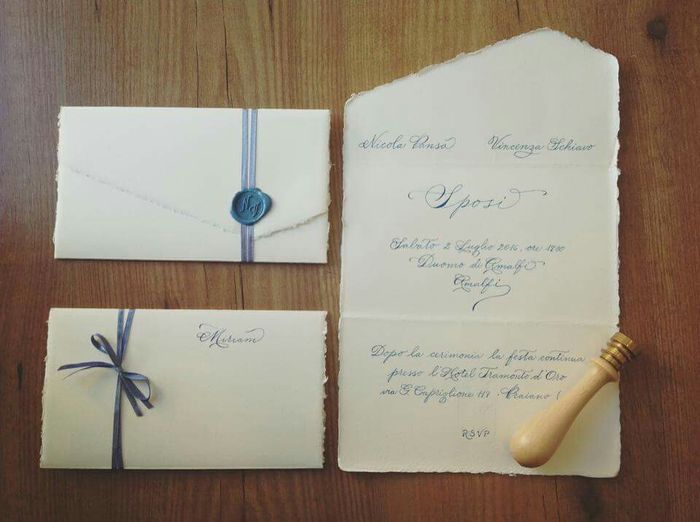 Nicola Pansa Vincenza Schiavo
Sposi
Sabato 2 Luglio 2016, ore 1800
Duomo di Amalfi
Amalfi
Dopo la cerimonia la festa continua
presso l'Hotel Tramonto d'Oro
via G. Capriglione 119 Praiano (
RSVP
Miriam